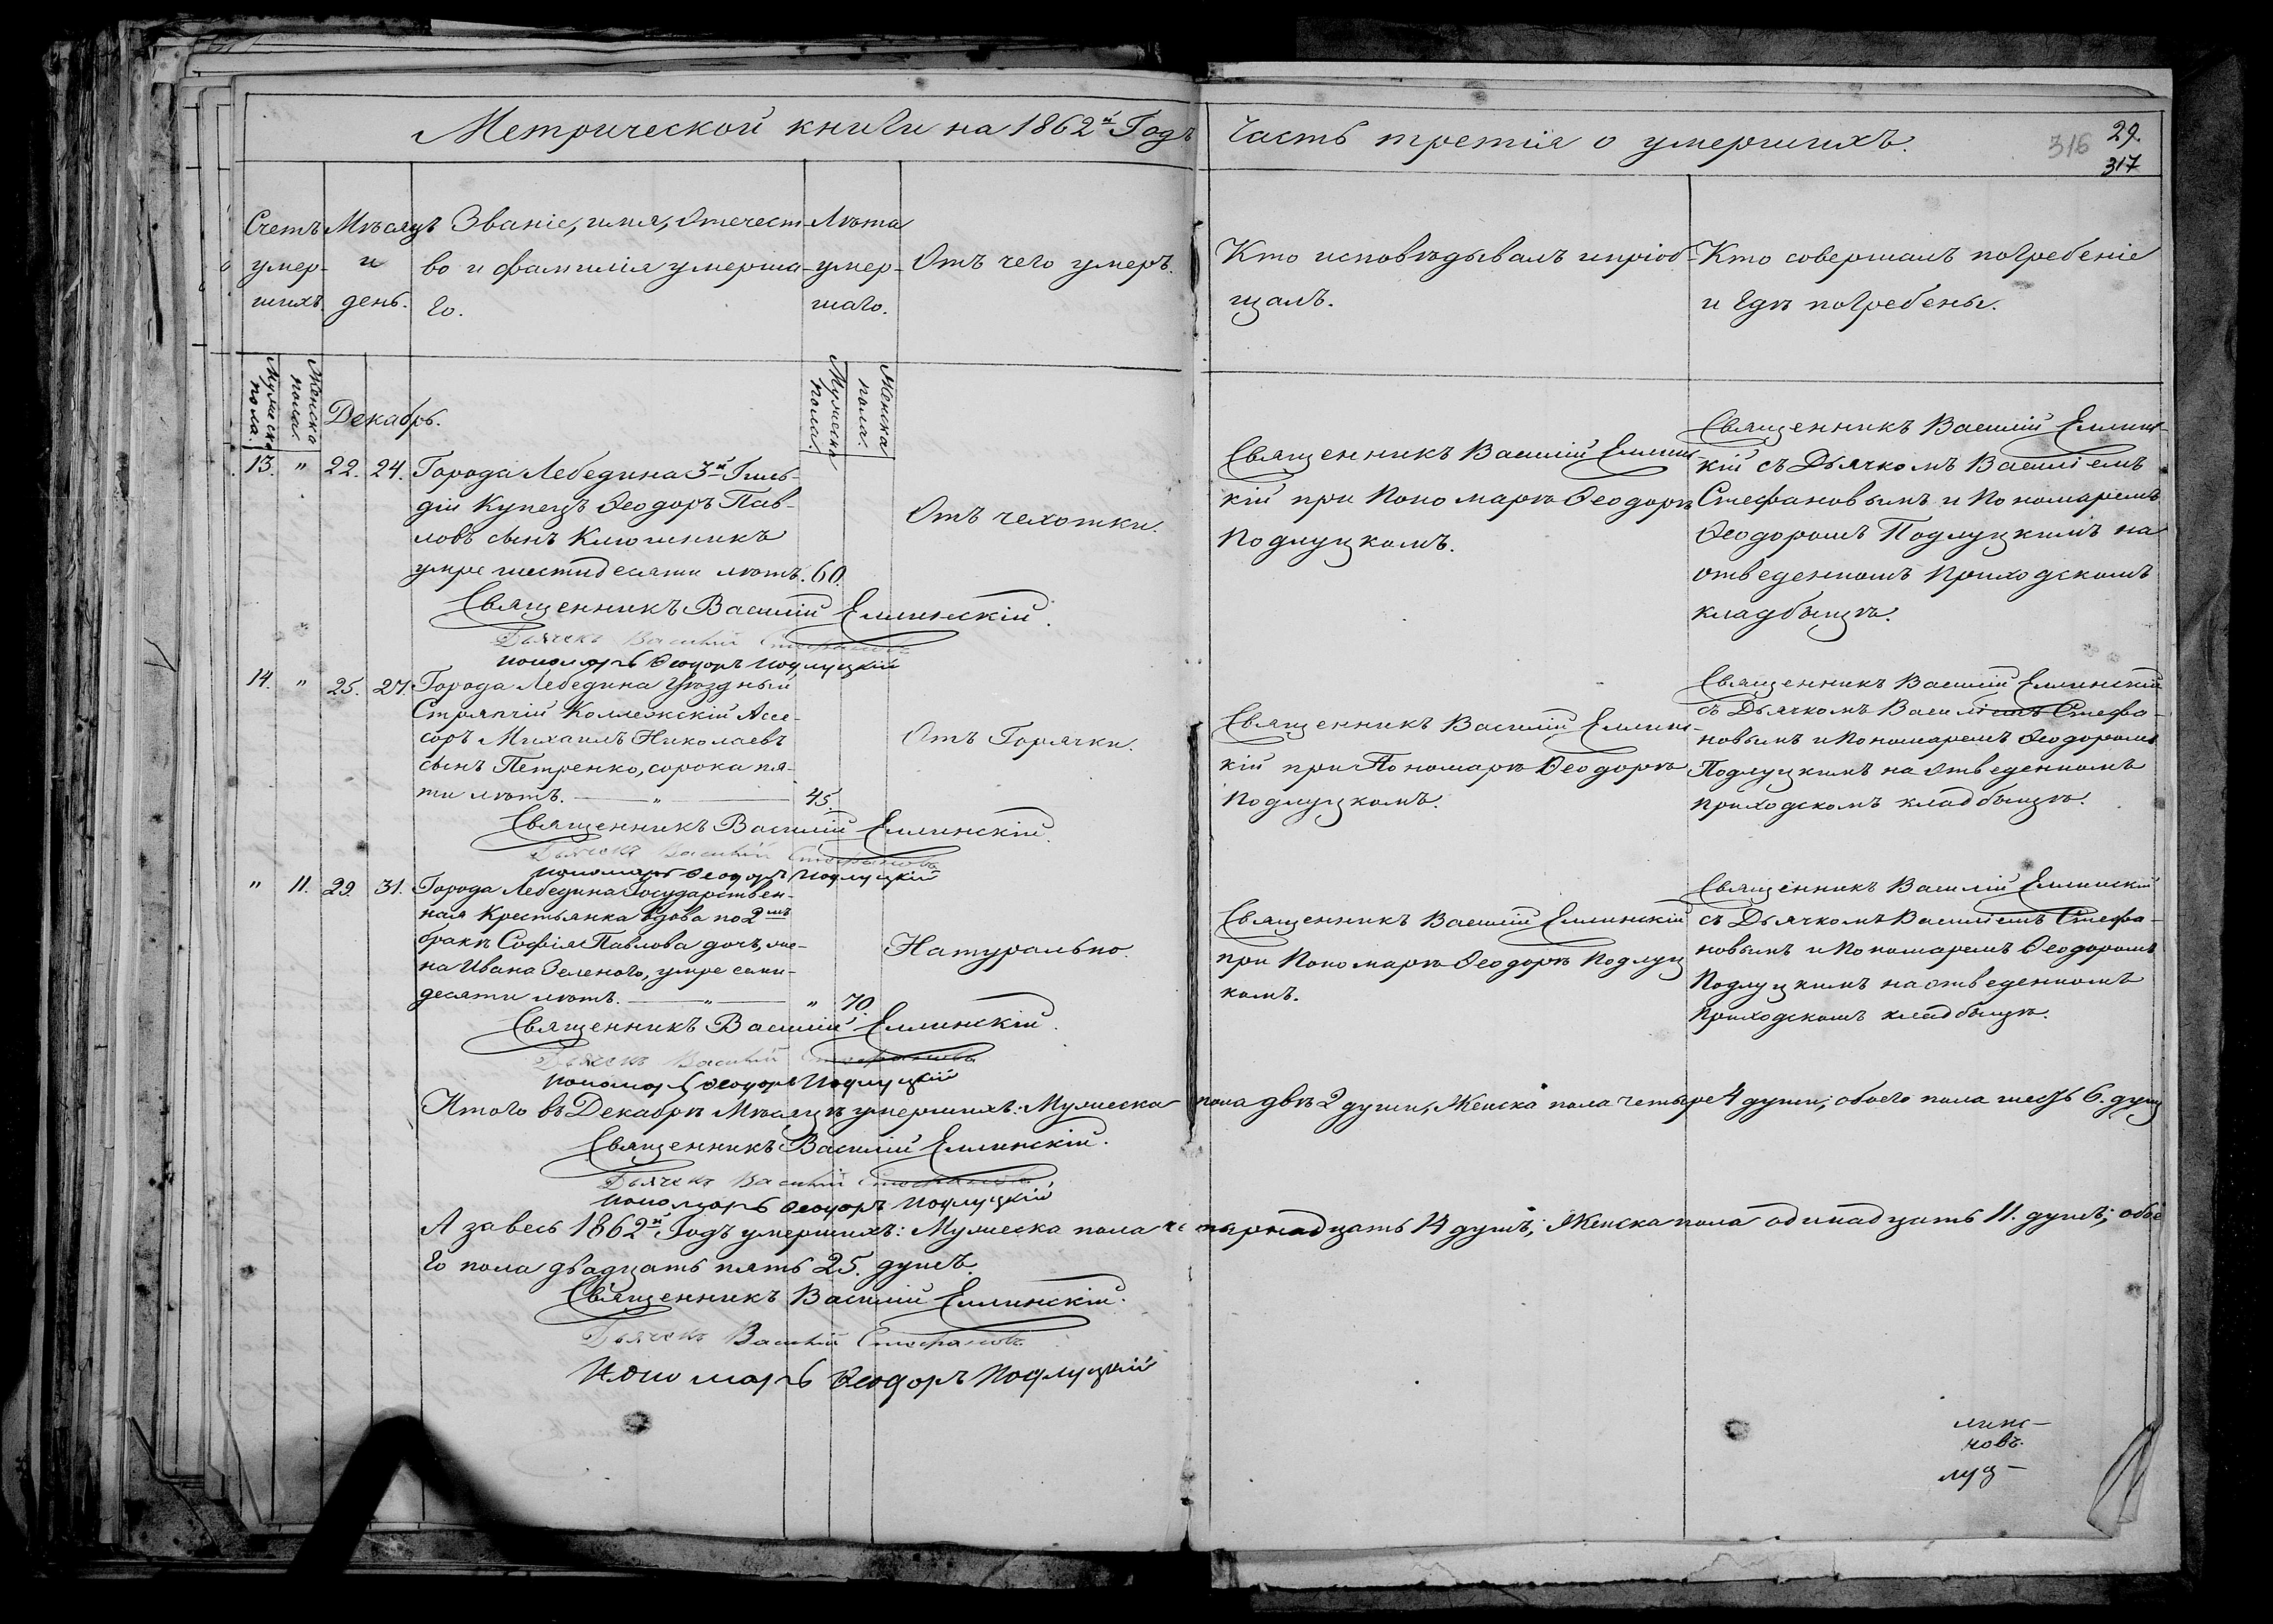 Метрической книги на 1862й Годъ
Часть третія о умершихъ.
316
29.
317
Счетъ умер- шихъ
Мужеска пола.
Женска пола.
Мѣсяцъ и день.
Званіе, имя, Отечест-
во и фамилія умерша-
го.
Лѣта умер- шаго.
Мужеска пола
Женска пола.
Отъ чего умеръ.
Кто исповѣдывалъ и пріоб-
щалъ.
Кто совершалъ погребеніе
и гдѣ погребены.
Декабрь.
13. " 22. 24.
Города Лебедина 3й Гиль-
діи Купецъ Ѳеодоръ Пав-
ловъ сынъ Ключникъ
умре шестидесяти лѣтъ. 60.
Отъ чехотки.
Священникъ Василій Еллинскій.
Дьячекъ Василій Стефановъ
пономарь Ѳеодоръ Подлуцкій
Священникъ Василій Еллинс-
кій при Пономарѣ Ѳеодорѣ
Подлуцкомъ.
Священникъ Василій Еллинс-
кій съ Дьячкомъ Василіемъ
Стефановымъ и Пономаремъ
Ѳеодоромъ Подлуцкимъ на
отведенномъ приходскомъ
кладбыщѣ.
14. " 25. 27.
Города Лебедина Уѣздный
Стряпчій Коллежскій Ассе-
соръ Михаилъ Николаевъ
сынъ Петренко, сорока пя-
ти лѣтъ. — " — 45.
Отъ Горячки.
Священникъ Василій Еллинскій.
Дьячекъ Василій Стефановъ
пономарь Ѳеодоръ Подлуцкій
Священникъ Василій Еллинс-
кій при Пономарѣ Ѳеодорѣ
Подлуцкомъ.
Священникъ Василій Еллинскій
съ Дьячкомъ Василіемъ Стефа-
новымъ и Пономаремъ Ѳеодоромъ
Подлуцкимъ на отведенномъ
приходскомъ кладбыщѣ.
" 11. 29. 31.
Города Лебедина Государствен-
ная Крестьянка вдова по 2мъ
бракѣ Софія Павлова дочь, же-
на Ивана Зеленого, умре семи-
десяти лѣтъ. — " — " 70.
Натурально.
Священникъ Василій Еллинскій.
Дьячекъ Василій Стефановъ
пономарь Ѳеодоръ Подлуцкій
Священникъ Василій Еллинскій
при Пономарѣ Ѳеодорѣ Подлуц
комъ.
Священникъ Василій Еллинскій
съ Дьячкомъ Василіемъ Стефа-
новымъ и Пономаремъ Ѳеодоромъ
Подлуцкимъ на отведенномъ
приходскомъ кладбыщѣ.
Итого въ Декабрѣ Мѣсяцѣ умершихъ: Мужеска пола двѣ 2 души, Женска пола четыре 4 души; обоего пола шесть 6. душ
Священникъ Василій Еллинскій.
Дьячекъ Василій Стефановъ
пономарь Ѳеодоръ Подлуцкій
А за весь 1862й Годъ умершихъ: Мужеска пола четырнадцать 14 душъ; Женска пола одинадцать 11. душъ; обое
го пола двадцать пять 25. душъ.
Священникъ Василій Еллинскій.
Дьячекъ Василій Стефановъ
Пономарь Ѳеодоръ Подлуцкій
линс-
новъ.
луц-